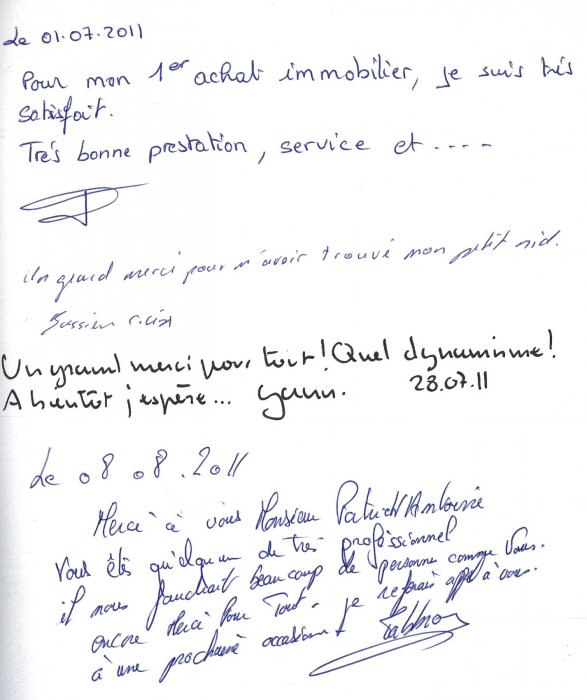 Le 01.07.2011
Pour mon 1er achat immobilier, je suis très
satisfait.
Très bonne prestation, service et ....
Un grand merci pour m'avoir trouvé mon petit nid.
Un grand merci pour tout! Quel dynamisme!
A bientôt j'espère... Yann. 28.07.11
Le 08 08.2011
Merci à vous Monsieur Patrick Antoine
Vous êtes quelqu'un de très professionnel
il nous faudrait beaucoup de personne comme vous.
encore Merci Pour Tout. je referais appel à vous
à une prochaine occasion